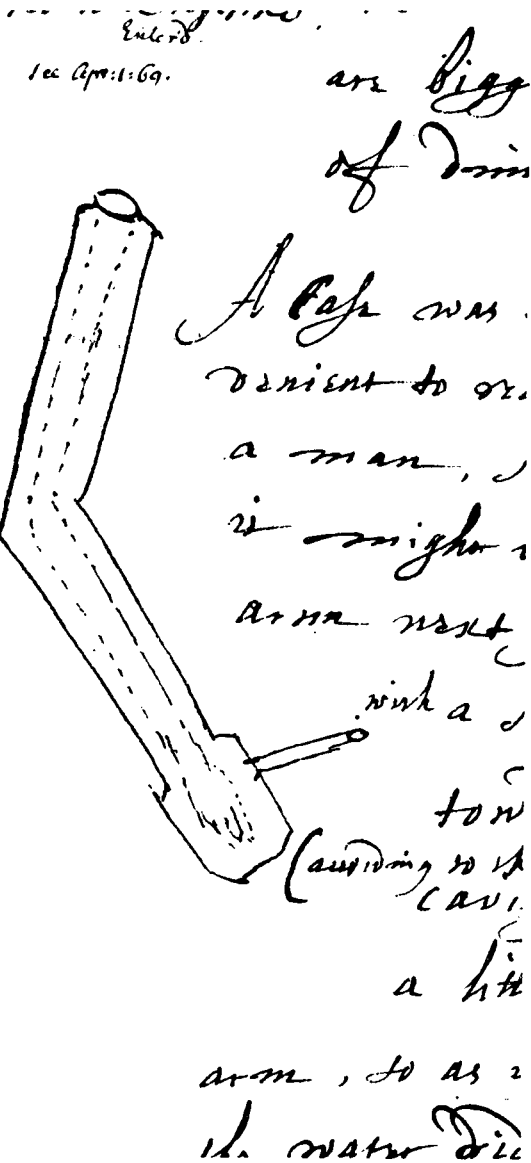 Enlard.
See Apr:1:69.
are bigg
of dim
A Case was
venient to re
a man, s
it might
arm next
with a s
tow
(according to th
cavi
a litt
arm, so as
the water